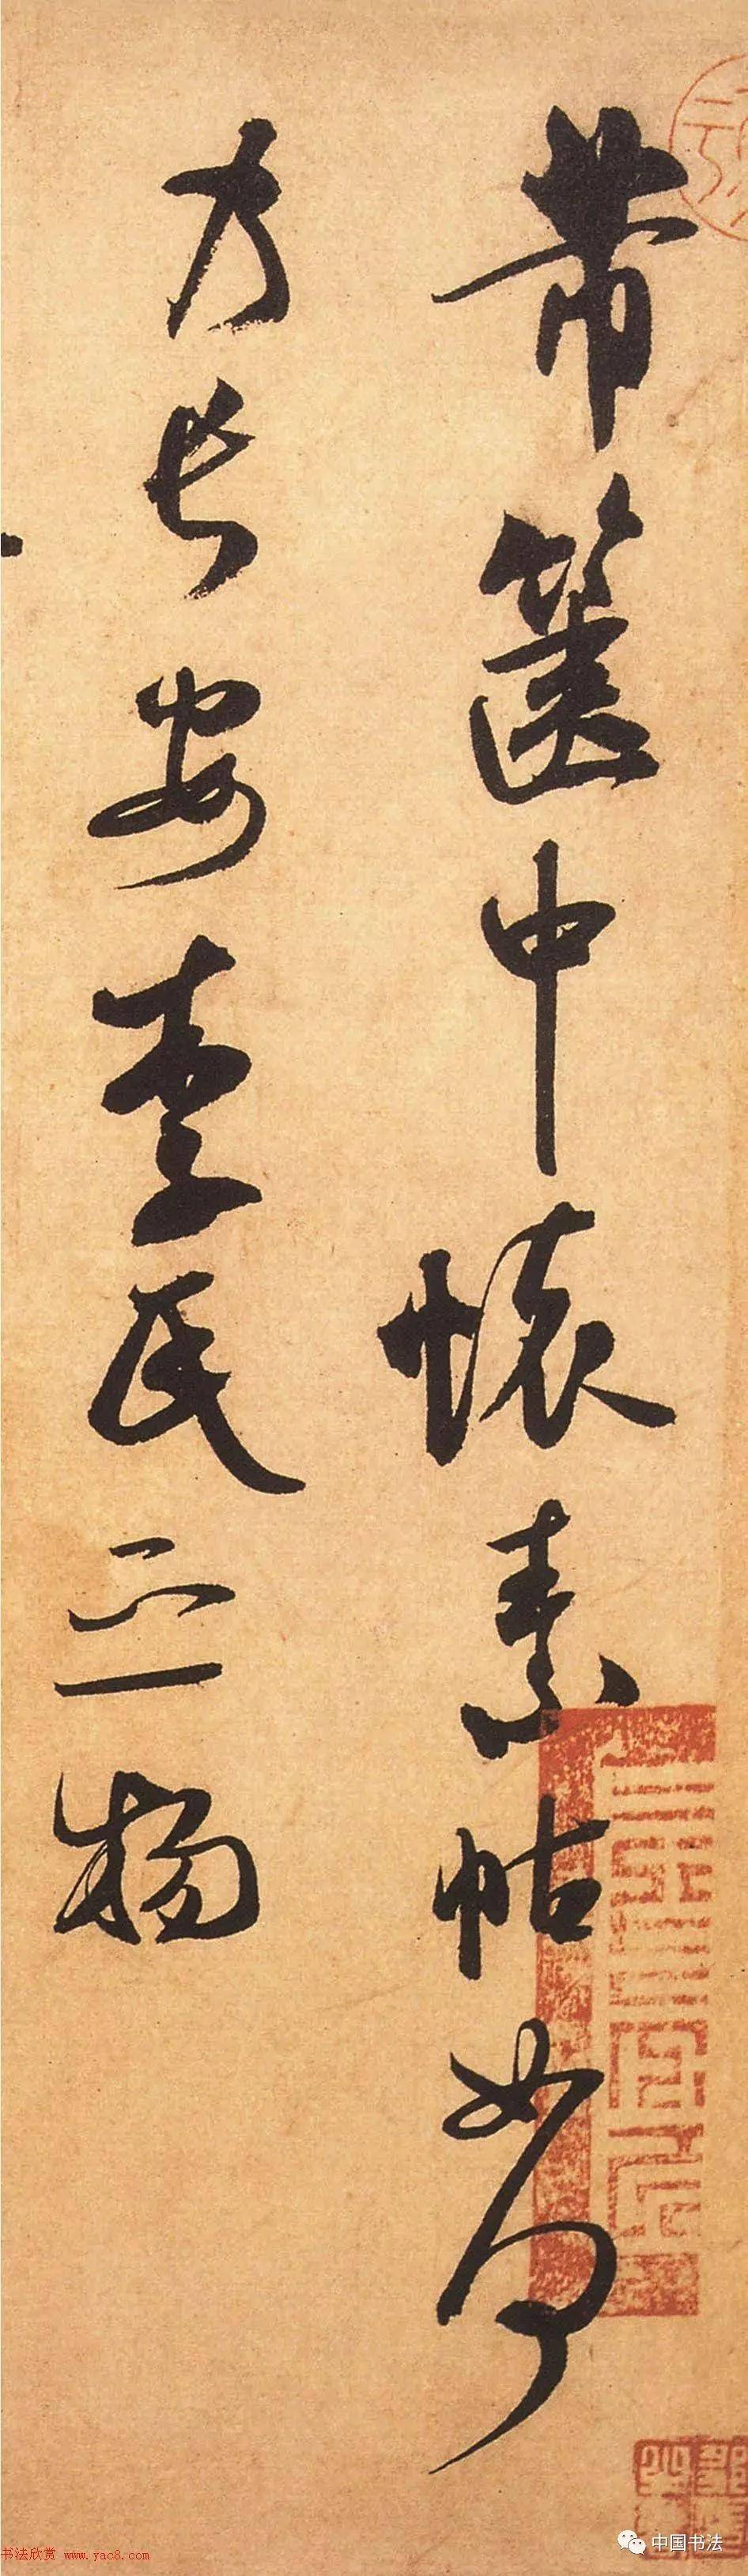 带箧中懷素帖如何
乃长安李氏之物
中国书法
书法欣赏 www.yac8.com